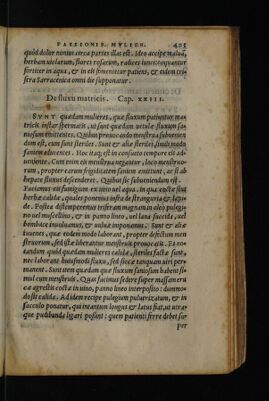 PASSIONIB. MVLIEB. 405
quod dolor nimius circa partes illas est. Ideo accipe maluã,
herbam violarum, flores rosarum, radices
fortiter in aqua, & in eis patiens, & eidem
Sarracenica omni die supponatur.
De fluxu matricis. Cap. XXIII.
SVNT quædam mulieres, quæ fluxum patiuntur matricis
instar spermatis, ut sunt quædam uetulæ fluxum
Quibus prouocando menstrua
dum est, cum sunt steriles. Sunt & aliæ steriles simili modo
saniem
Cum enim eis menstrua negantur, loco menstruorum,
propter earum frigiditatem saniem emittunt, & si ab
hepate
Quibus sic subueniendum est.
Faciamus eas fumigari ex uino uel aqua, in qua coctæ sint
herbæ calidæ, quales ponimus infra de stranguria & lepra.
Postea distemperemus triferam magnam oleo pulegino
uel muscellino, & in panno lineo, uel lana succida, uel
bombice inuoluimus, & uuluæ imponamus. Sunt & aliæ
iuuenes, quæ eodem modo laborant, propter defectum menstruorum,
sed istæ liberantur menstruis prouocatis. Et notandum,
quod quædam mulieres calidæ, steriles factæ sunt,
nec laborant huiusmodi fluxu, sed siccæ tanquam uiri permanent.
Sunt item quædam quæ fluxum saniosum habent simul
cum menstruis. Quas facimus sedere super massam cerea
agrestis coctæ in uino, panno lineo interposito: dummodo
sit calida. Ad idem recipe pulegium puluerizatum, & in
sacculo ponatur, qui in tantum longus & latus fiat, ut utraque
pudibunda ligari possent: quem patiens ferre debet super